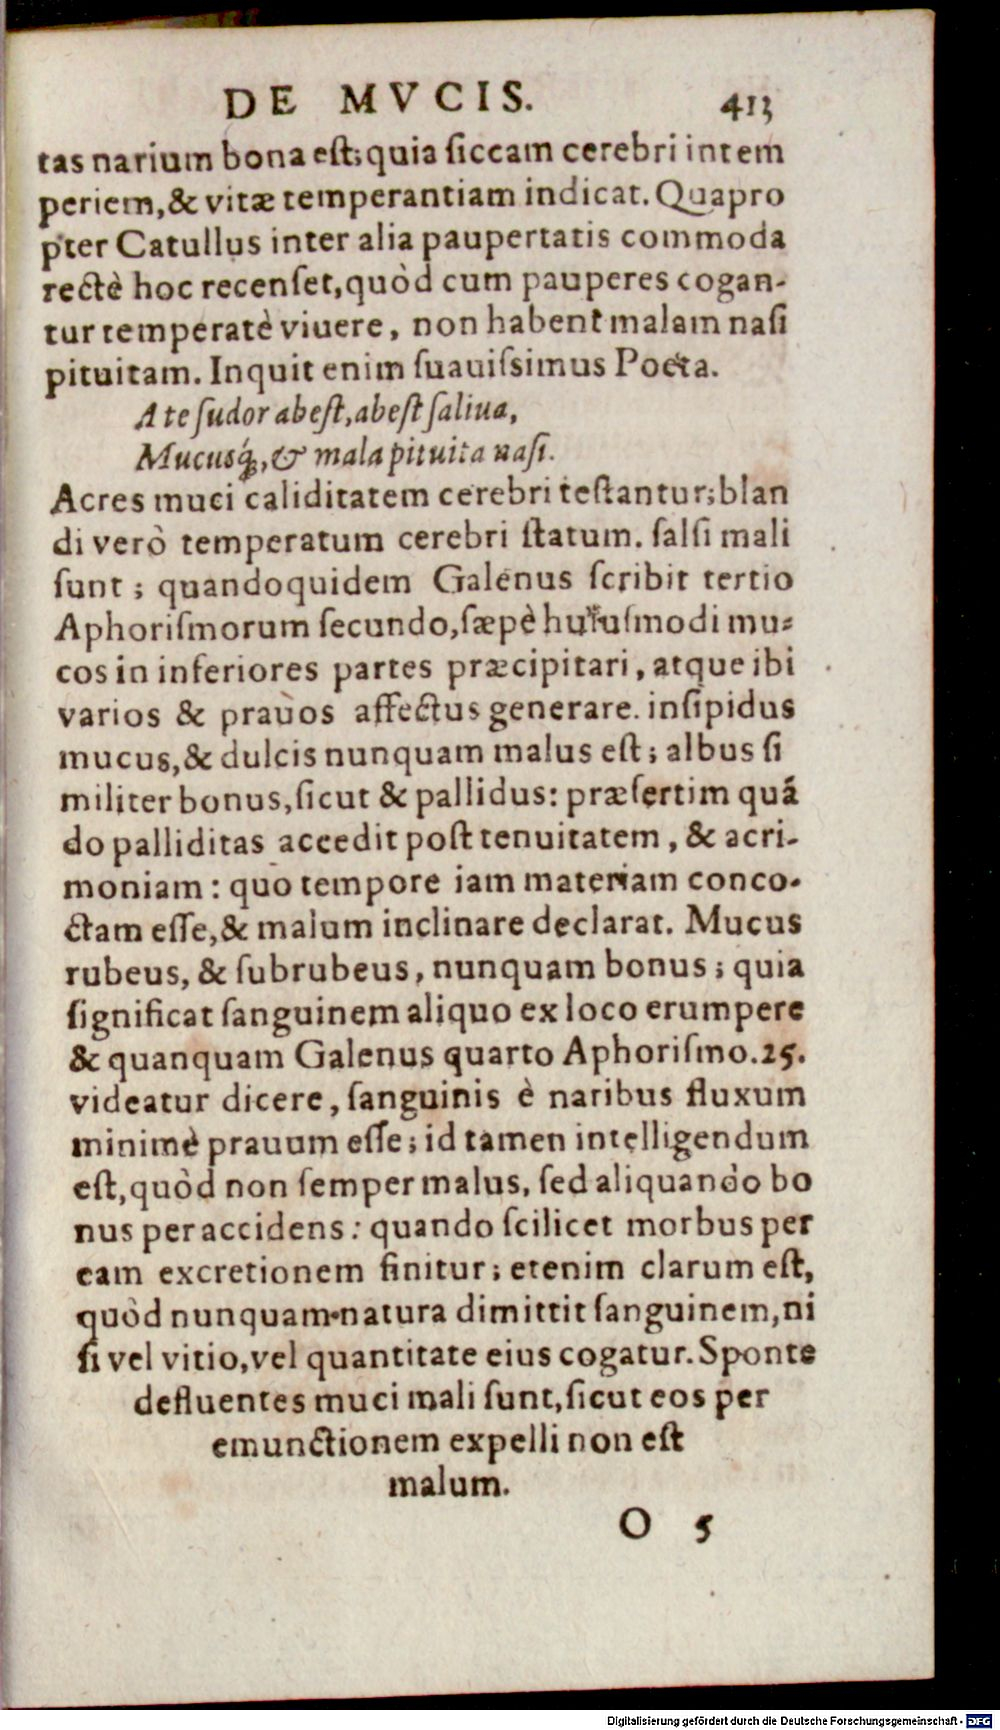 DE MVCIS. 413
tas narium bona est; quia siccam cerebri intem
periem, & vitæ temperantiam indicat. Quapro
pter Catullus inter alia paupertatis commoda
rectè hoc recenset, quòd cum pauperes cogan-
tur temperatè viuere, non habent malam nasi
pituitam. Inquit enim suauissimus Poeta.
A te sudor abest, abest saliua,
Mucusq́;, & mala pituita nasi.
Acres muci caliditatem cerebri testantur; blan
di verò temperatum cerebri statum. salsi mali
sunt; quandoquidem Galenus scribit tertio
Aphorismorum secundo, sæpè huiusmodi mu-
cos in inferiores partes præcipitari, atque ibi
varios & prauos affectus generare. insipidus
mucus, & dulcis nunquam malus est; albus si
militer bonus, sicut & pallidus: præsertim quā
do palliditas accedit post tenuitatem, & acri-
moniam: quo tempore iam materiam conco-
ctam esse, & malum inclinare declarat. Mucus
rubeus, & subrubeus, nunquam bonus; quia
significat sanguinem aliquo ex loco erumpere
& quanquam Galenus quarto Aphorismo. 25.
videatur dicere, sanguinis è naribus fluxum
minimè prauum esse; id tamen intelligendum
est, quòd non semper malus, sed aliquando bo
nus per accidens: quando scilicet morbus per
eam excretionem finitur; etenim clarum est,
quòd nunquam natura dimittit sanguinem, ni
si vel vitio, vel quantitate eius cogatur. Sponte
defluentes muci mali sunt, sicut eos per
emunctionem expelli non est
malum.
O 5
Digitalisierung gefördert durch die Deutsche Forschungsgemeinschaft - DFG